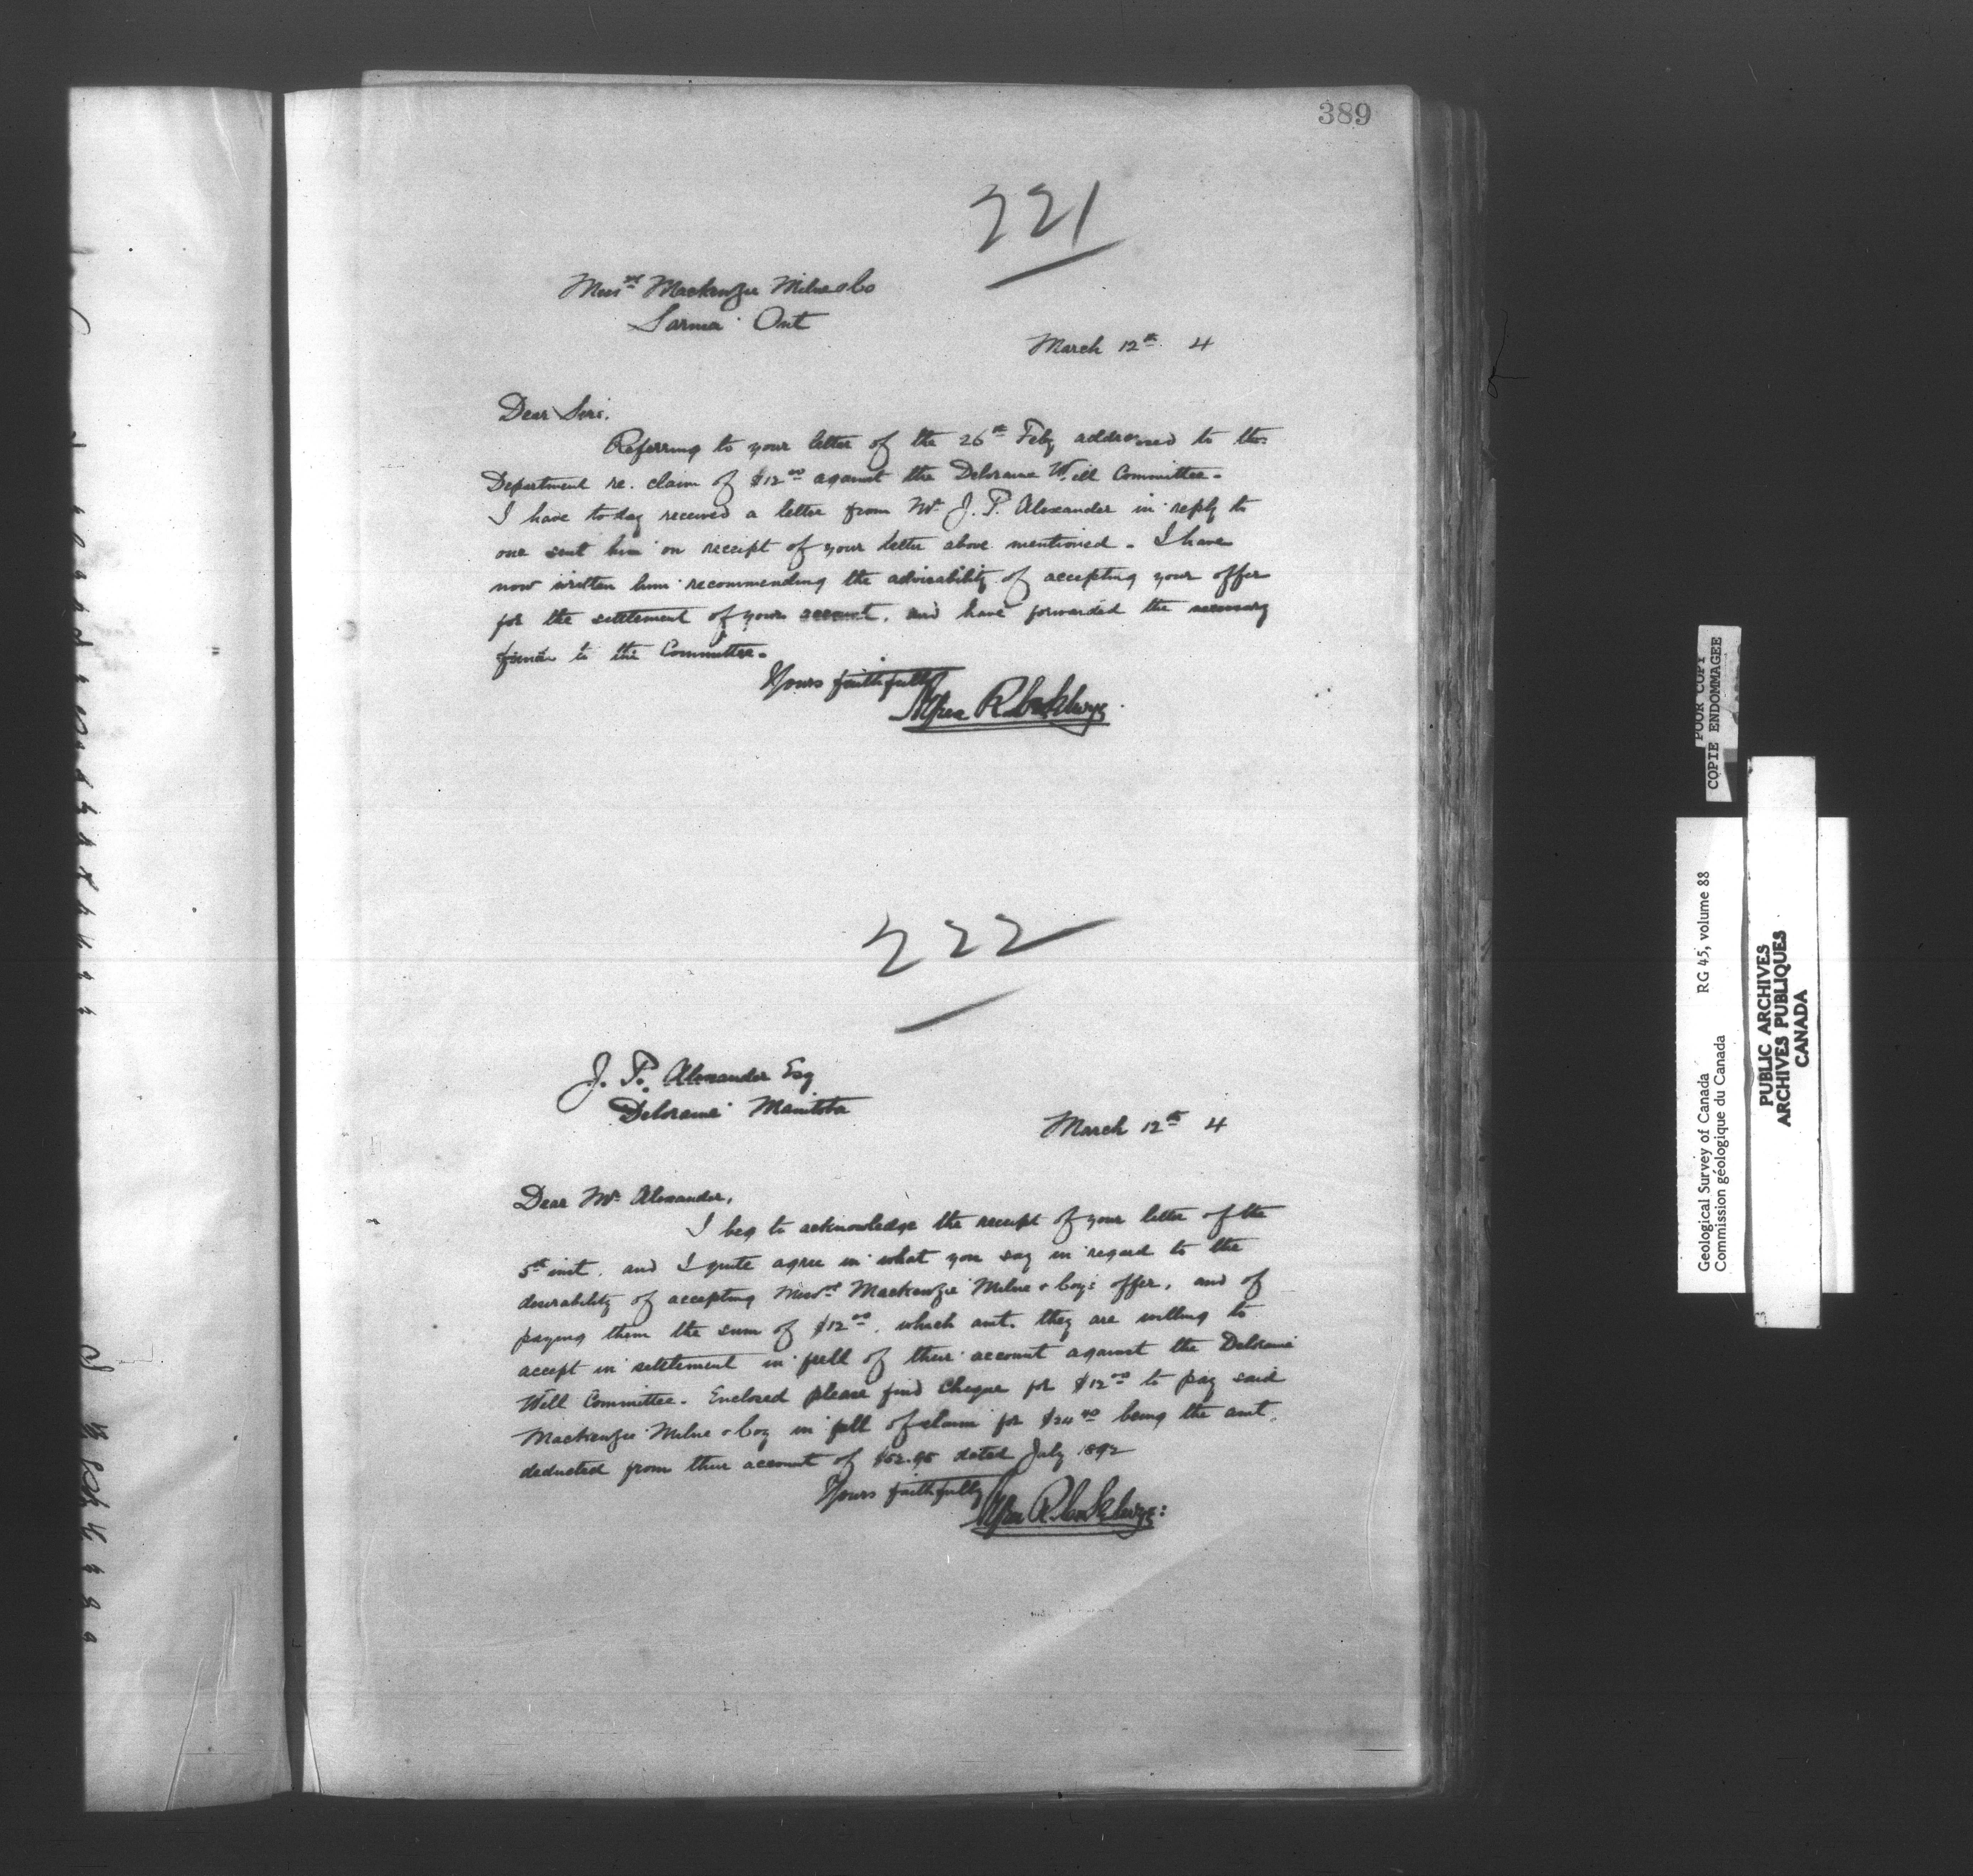 389
221
Messrs Mackenzie Milne & Co
Sarnia Ont
March 12th 4
Dear Sirs,
Referring to your letter of the 26th Feby addressed to the
Department re. claim of $12.00 against the Deloraine Well Committee.
I have to-day received a letter from Mr J. P. Alexander in reply to
one sent him on receipt of your letter above mentioned. I have
now written him recommending the advisability of accepting your offer
for the settlement of your account, and have forwarded the necessary
to the Committee.
Yours faithfully
222
J. P. Alexander Esq
Deloraine Manitoba
March 12th 4
Dear Mr Alexander,
I beg to acknowledge the receipt of your letter of the
5th inst. and I quite agree in what you say in regard to the
desirability of accepting Messrs Mackenzie Milne & Coy's offer, and of
paying them the sum of $12.00, which amt. they are willing to
accept in settlement in full of their account against the Deloraine
Well Committee. Enclosed please find cheque for $12.00 to pay said
Mackenzie Milne & Coy in full of claim for $24.40 being the amt.
deducted from their account of dated July 1892
Yours faithfully
POOR COPY
COPIE ENDOMMAGEE
Geological Survey of Canada RG 45, volume 88
Commission géologique du Canada
PUBLIC ARCHIVES
ARCHIVES PUBLIQUES
CANADA